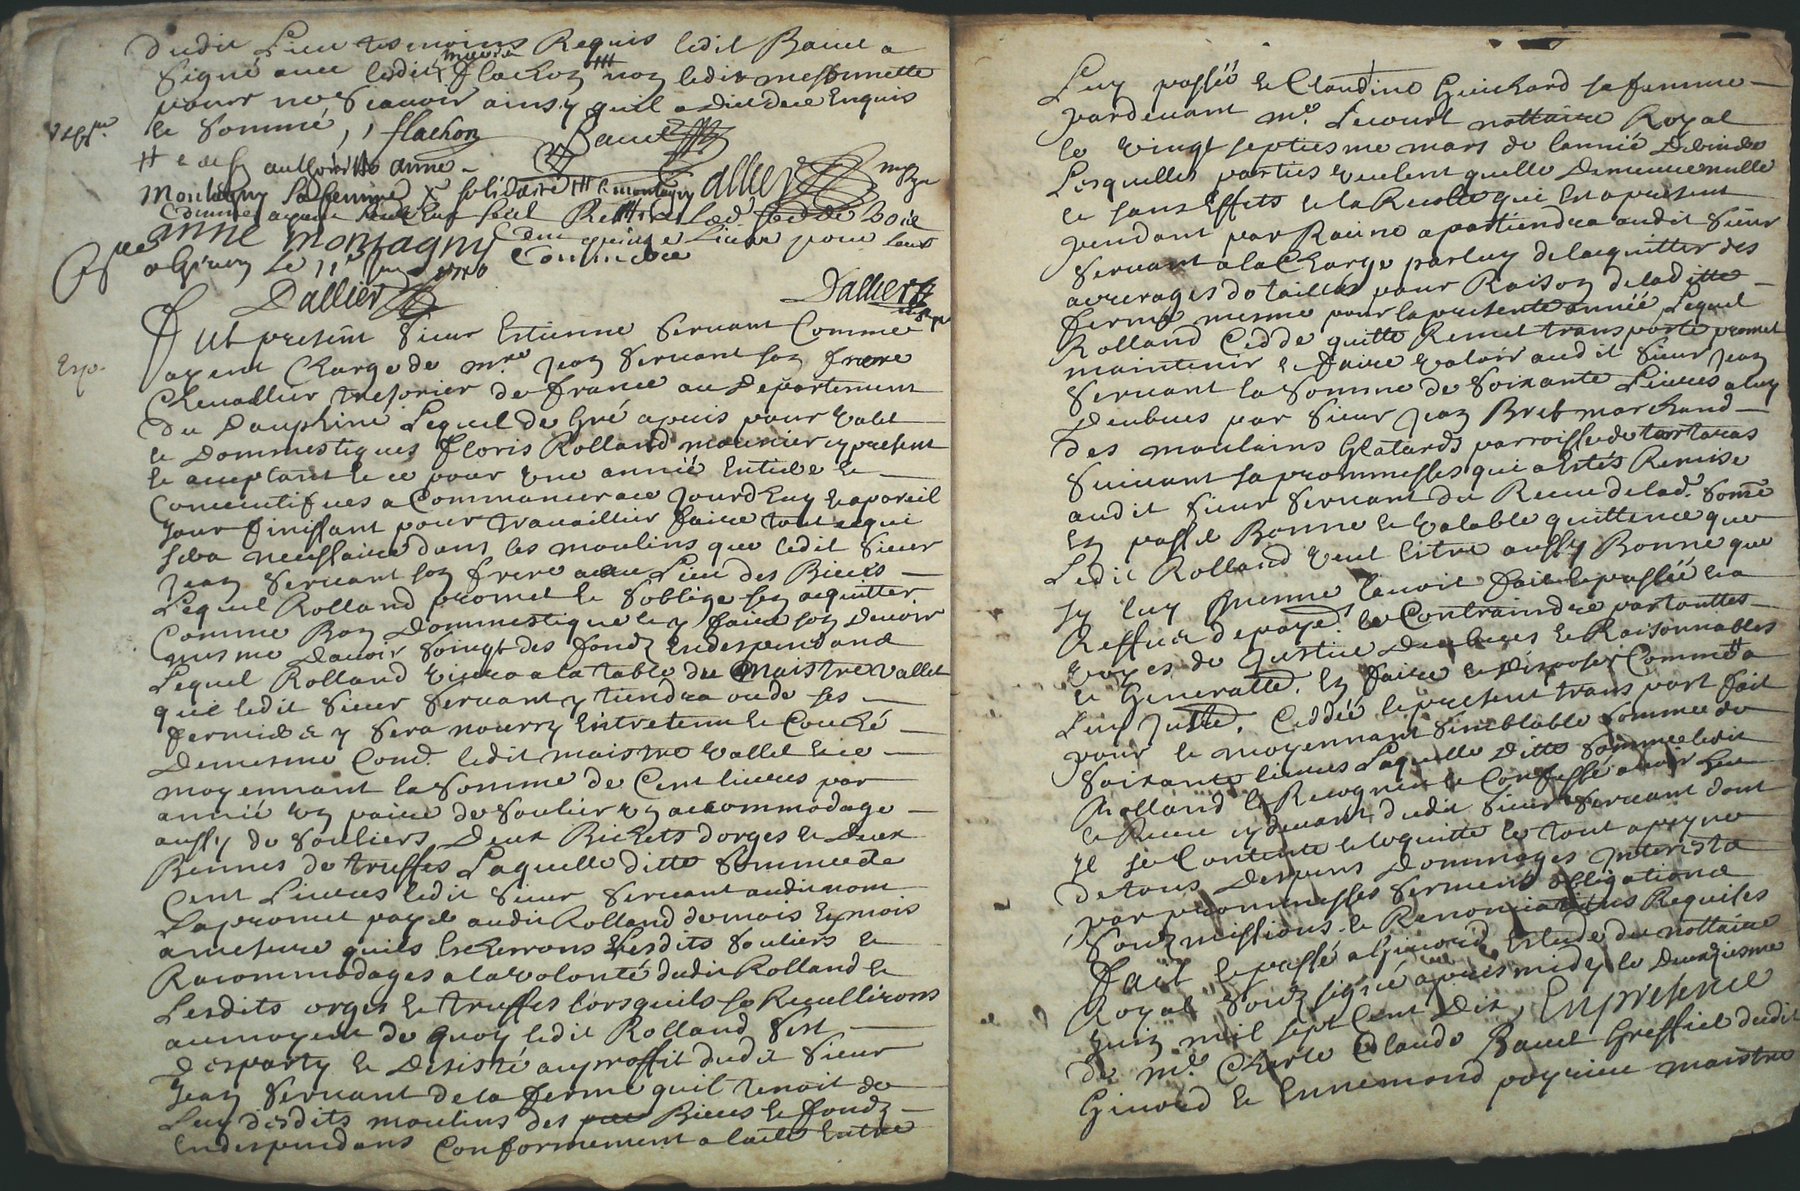 dudit Lieu tesmoins Requis ledit Bauet a
signé auec ledit Flachon non ledit messonnette
pour ne scauoir ainsy quil a dict de ce Enquis
et sommé, flachon Bauet
authorité anne
montagny sa femme solidaire montagny dallier
anne montagny Cent quinze Liures pour Leur
Dallier
Dallier
Fut present sieur Estienne seruant Comme
Exp.
ayent Charge de mre Jean seruant son frere
Cheuallier tresorier de france au Departement
du Dauphiné Lequel de Gré a pris pour valet
et Dommestiques floris Rolland meunier cy present
et acceptant et ce pour vne année Entiere et
Consecutifues a Commancer ce Jourdhuy et a pareil
Jour finissant pour trauaillier faire tout ce qui
sera necessaire dans les moulins que ledit sieur
Jean seruant son frere a au Lieu des Bieres
Lequel Rolland promet et soblige sen acquitter
Comme Bon Dommestique et y faire son Deuoir
mesme dauoir soingt des fondz Endespendand
Lequel Rolland viura a la table du maistre vallet
que ledit sieur seruant y tiendra ou de ses
fermiers et y sera nourry Entretenu et Couché
Demesme Comd. ledit maistre vallet et ce
moyennant la somme de Cent liures par
année vn paire de soulier vn accommodage
aussy de souliers Deux Bichets dorges et Deux
Bennes de truffes Laquelle ditte somme de
Cent Liures ledit sieur seruant audit nom
La promet payer audit Rolland de mois En mois
a mesure quils Escherrons Lesdits souliers et
Racommodages a la volonté dudit Rolland et
Lesdits orges et truffes lorsquils se Recullirons
au moyent de quoy ledit Rolland sest
desparty et desisté au proffit dudit sieur
Jean seruant de la ferme quil tenoit de
Luy desdits moulins des Bieres et fondz
Endespendans Conformement a lacte Entre
Luy passée et Claudine Guichard sa femme
pardeuant me. Lecourt nottaire Royal
le vingt septiesme mars de lannée Derniere
Lesquelles parties veulent quelle Demeure nulle
et sans Effets et la Recolte qui Est a present
pendant par Racine apartiendra audit sieur
seruant a la Charge par luy de lacquitter des
arrerages de tailles pour Raison de laditte
ferme mesme pour la presente année Lequel
Rolland Cedde quitte Remet transporte promet
maintenir et faire valoir audit sieur Jean
seruant la somme de soixante Liures a luy
Deubues par sieur Jean Bret marchand
des moulins Glatards parroisse de tartaras
suiuant sa prommesses qui a Estés Remise
audit sieur seruant du Receu de lad. somme
En passe Bonne et valable quittence que
Ledit Rolland veut Estre aussy Bonne que
sy luy mesme lauoit faite et passée En a
Reffus de payer le Contraindre par touttes
voyes de Justice Deubues et Raisonnables
et Generalle. En faire et disposer Comme a
Luy Juste, Ceddée le present transport fait
pour et moyennant semblable somme de
soixante liures Laquelle ditte somme ledit
Rolland a Recognu et Confessé auoir Eu
et Receu cy deuant dudit sieur seruant dont
Il se Contente et le quitte le tout a peyne
de tous Despens Dommages Interests
par prommesses serment obligations
soubzmissions et Renonciations Requises
Fait et passé a Giuord Estude du nottaire
Royal soubzsigné apres midy le Deuxiesme
Juin mil sept Cent dix, En presence
de me. Charle Claude Bauet Greffier dudit
Giuord et Ennemond poyrieu maistre